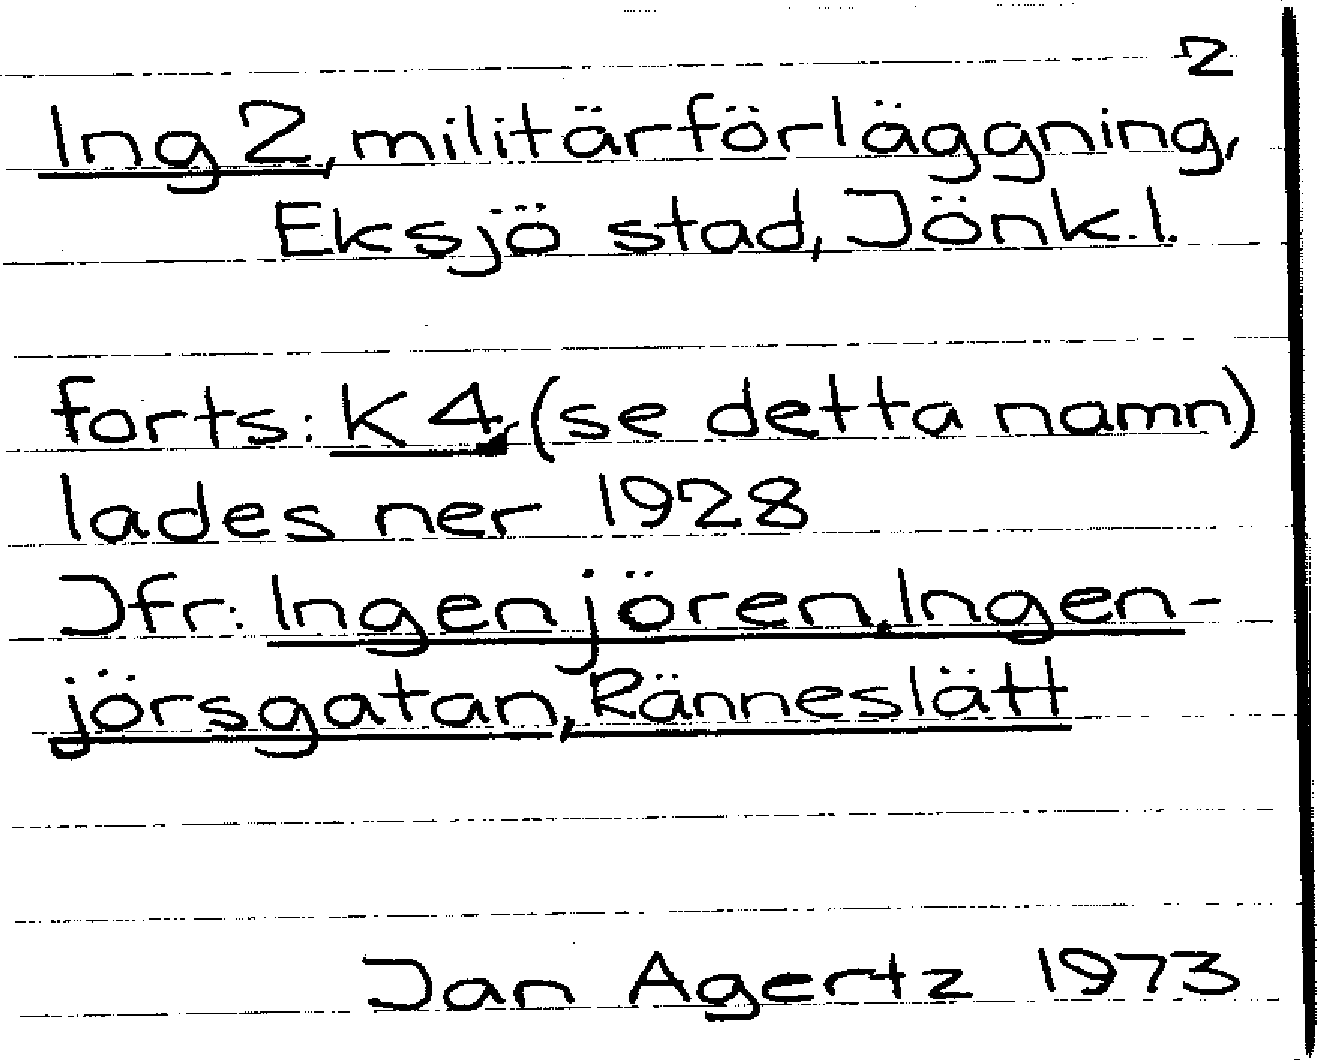 2
Ing 2, militärförläggning,
Eksjö stad, Jönk.l.
forts: K 4 (se detta namn)
lades ner 1928
Jfr: Ingenjören, Ingen-
jörsgatan, Ränneslätt
Jan Agertz 1973